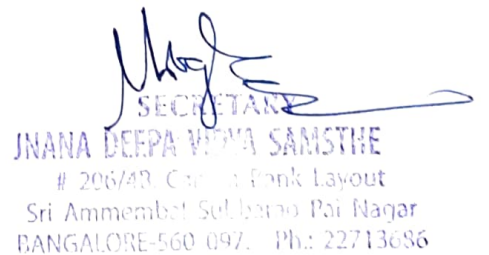 SECRETARY
JNANA DEEPA VIDYA SAMSTHE
# 206/48, Canara Bank Layout
Sri Ammembal Subbarao Pai Nagar
BANGALORE-560 097. Ph.: 22713686